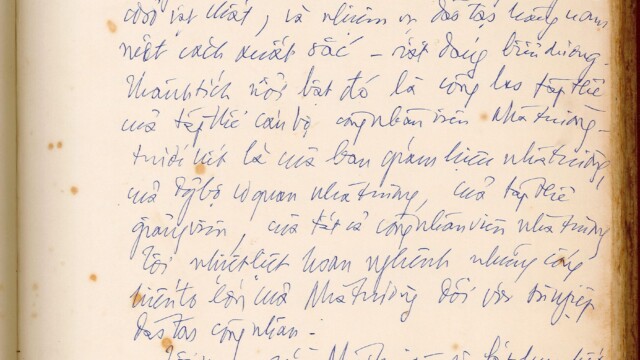 cơ sở vật chất, và nhiệm vụ đào tạo hàng năm
một cách xuất sắc – rất đáng biểu dương.
Thành tích nổi bật đó là công lao tập thể
của tập thể cán bộ công nhân viên Nhà trường –
trước hết là của ban giám hiệu nhà trường,
của Đảng bộ cơ quan nhà trường, của tập thể
giảng viên, của tất cả công nhân viên nhà trường
Tôi nhiệt liệt hoan nghênh những cống
hiến to lớn của Nhà trường đối với sự nghiệp
đào tạo công nhân.